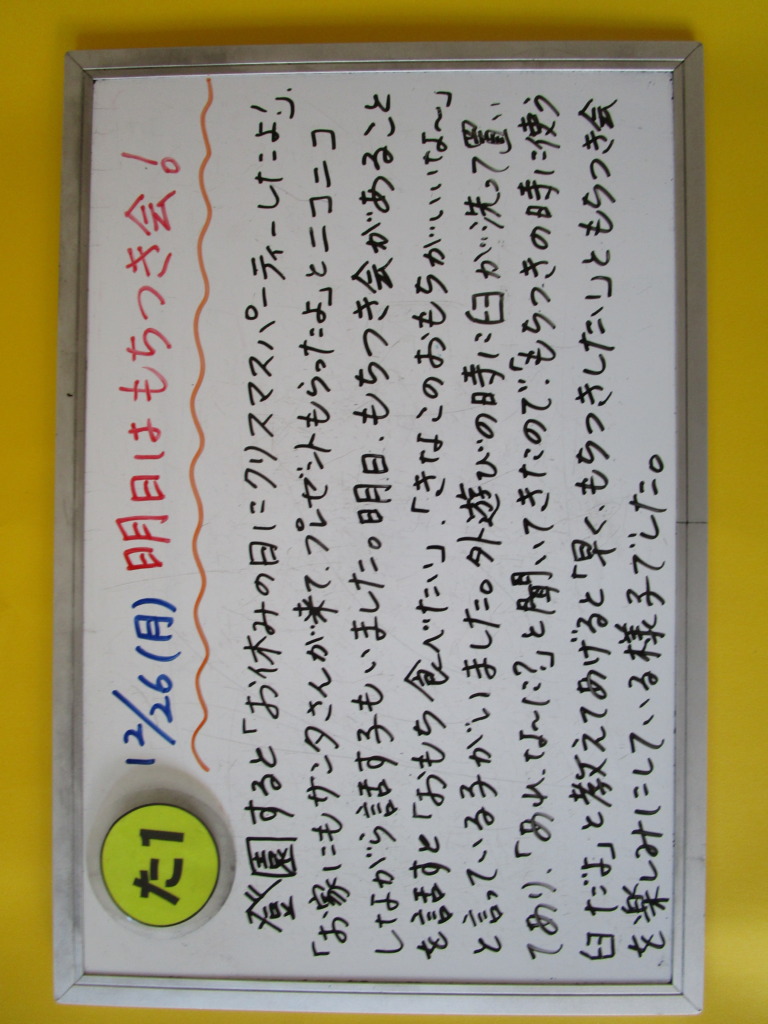 た1
12/26(月) 明日はもちつき会！
登園すると「お休みの日にクリスマスパーティーしたよ」、
「お家にもサンタさんが来て、プレゼントもらったよ」とニコニコ
しながら話す子もいました。明日、もちつき会があること
を話すと「おもち食べたい」、「きなこのおもちがいいな〜」
と言っている子がいました。外遊びの時に臼が洗って置い
てあり、「あれ、な〜に？」と聞いてきたので、「もちつきの時に使う
臼だよ」と教えてあげると「早く、もちつきしたい」ともちつき会
を楽しみにしている様子でした。